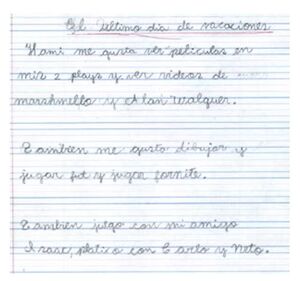 El último día de vacaciones
Hami me gusta ver peliculas en
mis 2 plays y ver videos de
marshmello y Alan Walquer.
Tambien me gusta dibujar y
jugar fut y jugar fornite.
Tambien juego con mi amigo
Isaac, platico con Carlo y Neto.